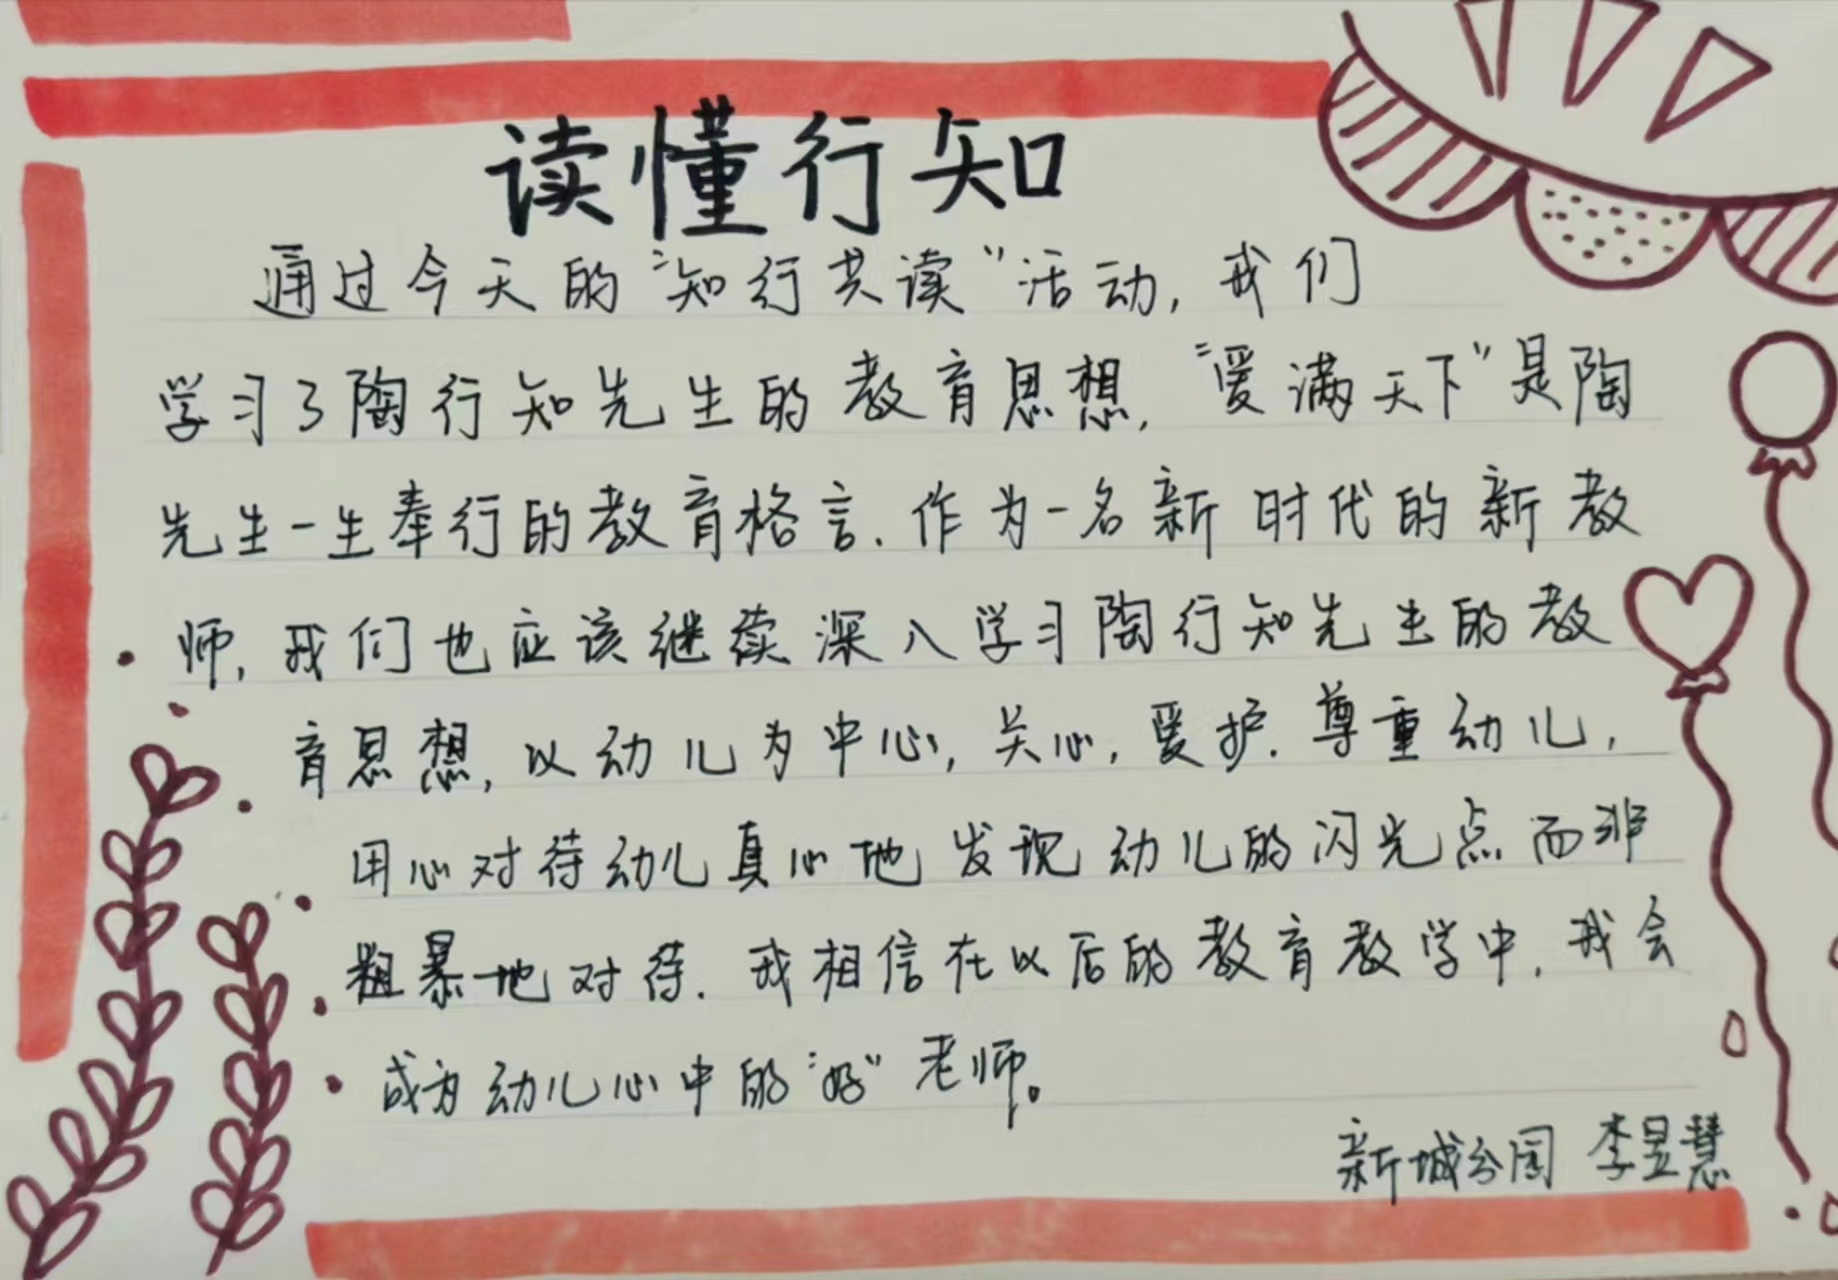 读懂行知
通过今天的“知行共读”活动,我们
学习了陶行知先生的教育思想,“爱满天下”是陶
先生一生奉行的教育格言.作为一名新时代的新教
师,我们也应该继续深入学习陶行知先生的教
育思想,以幼儿为中心,关心,爱护.尊重幼儿,
用心对待幼儿真心地发现幼儿的闪光点而非
粗暴地对待.我相信在以后的教育教学中,我会
成为幼儿心中的“好”老师。
新城分园 李昱慧